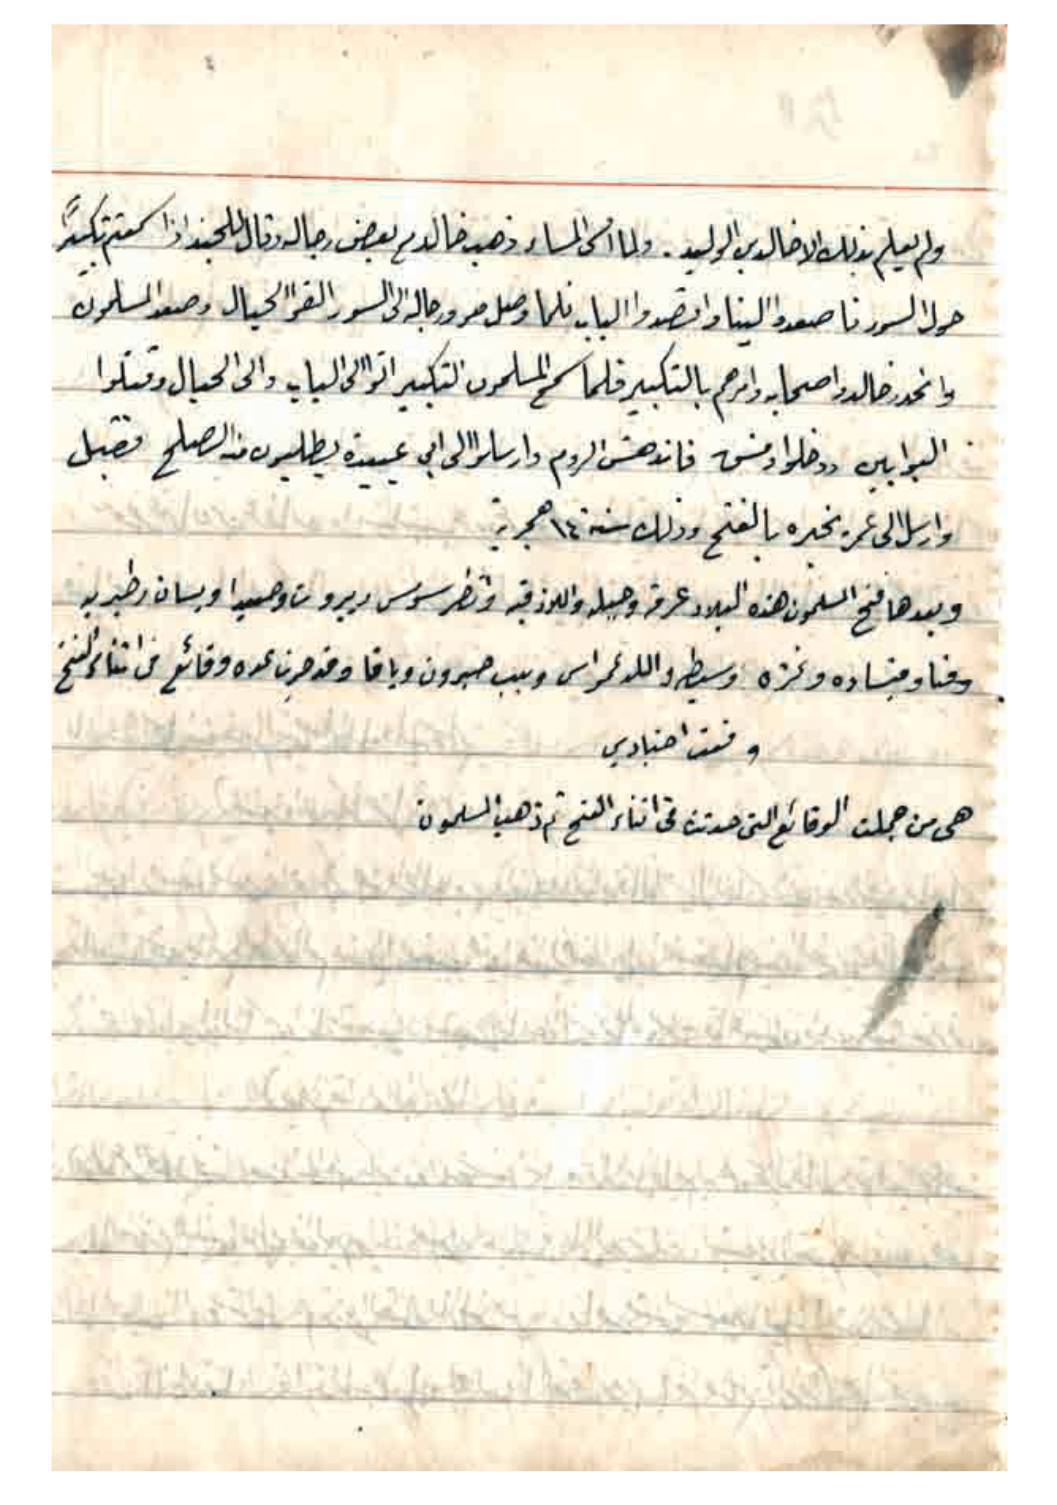 ولم يعلم بذلك الا خالد بن الوليد. ولما امسى المساء ذهب خالد مع بعض رجاله وقال للجند اذا سمعتم تكبيراً
حول السور فاصعدوا الينا واقصدوا الباب فلما وصل هو ورجاله الى السور القوا الحبال وصعد المسلمون
وانحدر خالد واصحابه وامرهم بالتكبير فلما سمع المسلمون التكبير اتوا الى الباب والى الحبال وقتلوا
البوابين ودخلوا دمشق فاندهش الروم وارسلوا الى ابي عبيدة يطلبون منه الصلح فقبل
وارسل الى عمر يخبره بالفتح وذلك سنة ١٤ هجرية
وبعدها فتح المسلمون هذه البلاد عرقه وجبيله واللاذقيه وانطرسوس وبيروت وصيدا وبيسان وطبريه
ويافا وقيساريه وغزه وسبطيه واللد وعمواس وبيت جبرون ويافا وقد جرت عدة وقائع في اثناء الفتح
وقعت اجنادين
هى من جملت الوقائع التى حدثت فى اثناء الفتح ثم ذهب المسلمون